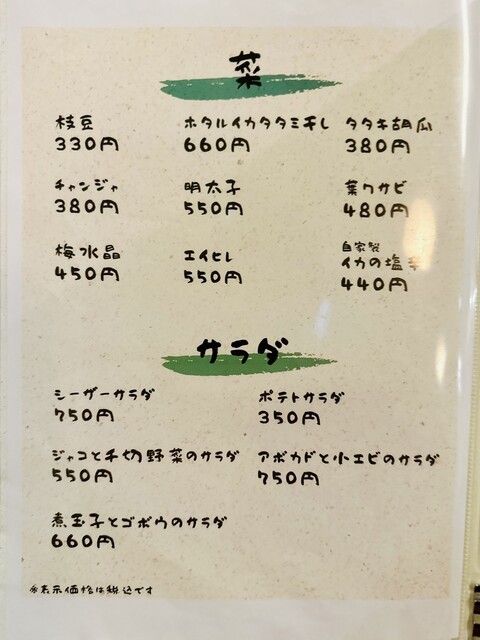 菜
枝豆 ホタルイカタタミ干し タタキ胡瓜
330円 660円 380円
チャンジャ 明太子 葉ワサビ
380円 550円 480円
梅水晶 エイヒレ 自家製
イカの塩辛
450円 550円 440円
サラダ
シーザーサラダ ポテトサラダ
750円 350円
ジャコと千切野菜のサラダ アボカドと小エビのサラダ
550円 750円
煮玉子とゴボウのサラダ
660円
※表示価格は税込です